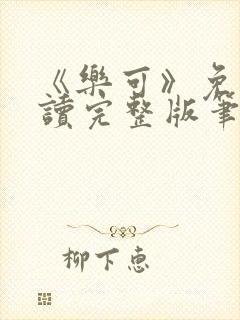 《樂可》免
讀完整版筆
柳下惠